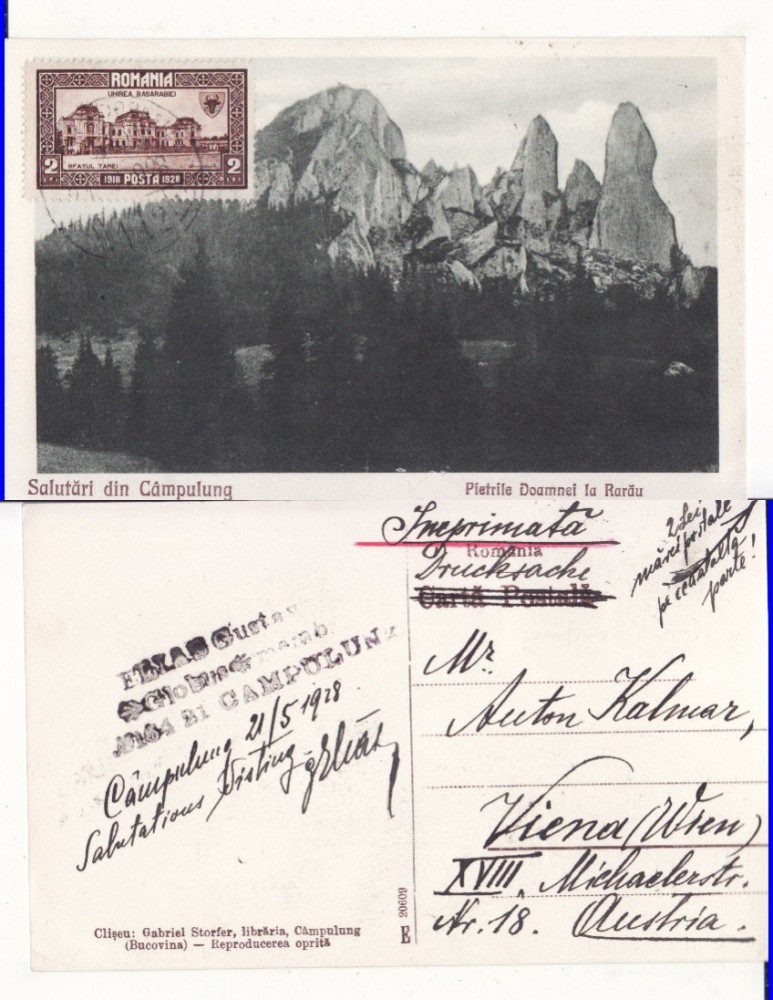 ROMANIA
UNIREA BASARABIEI
SFATUL TAREI
2 1918 POSTA 1928 2
Salutări din Câmpulung
Pietrile Doamnei la Rarău
Imprimată
România
Drucksache
Cartă Postală
2 Lei
mărci poștale
pe cealaltă
parte!
ELIAS Gustav
CAMPULUNG
Câmpulung 21/5 1928.
Salutations
Mr.
Anton Kalmar,
Viena (Wien)
XVIII, Michaelerstr.
Nr. 18. Austria.
Clișeu: Gabriel Storfer, librăria, Câmpulung
(Bucovina) — Reproducerea oprită
E 20609